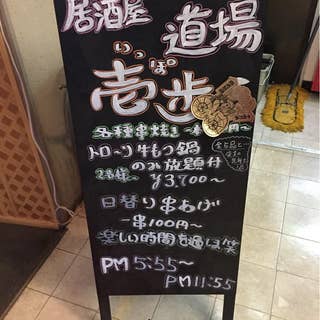 居酒屋 道場
いっぽ
壱歩
各種串焼き 一本 円〜
トロ〜リ牛もつ鍋
のみ放題付
2名様〜 ¥3,700〜
日替り串あげ
一串100円〜
楽しい時間を
PM 5:55〜
PM 11:55